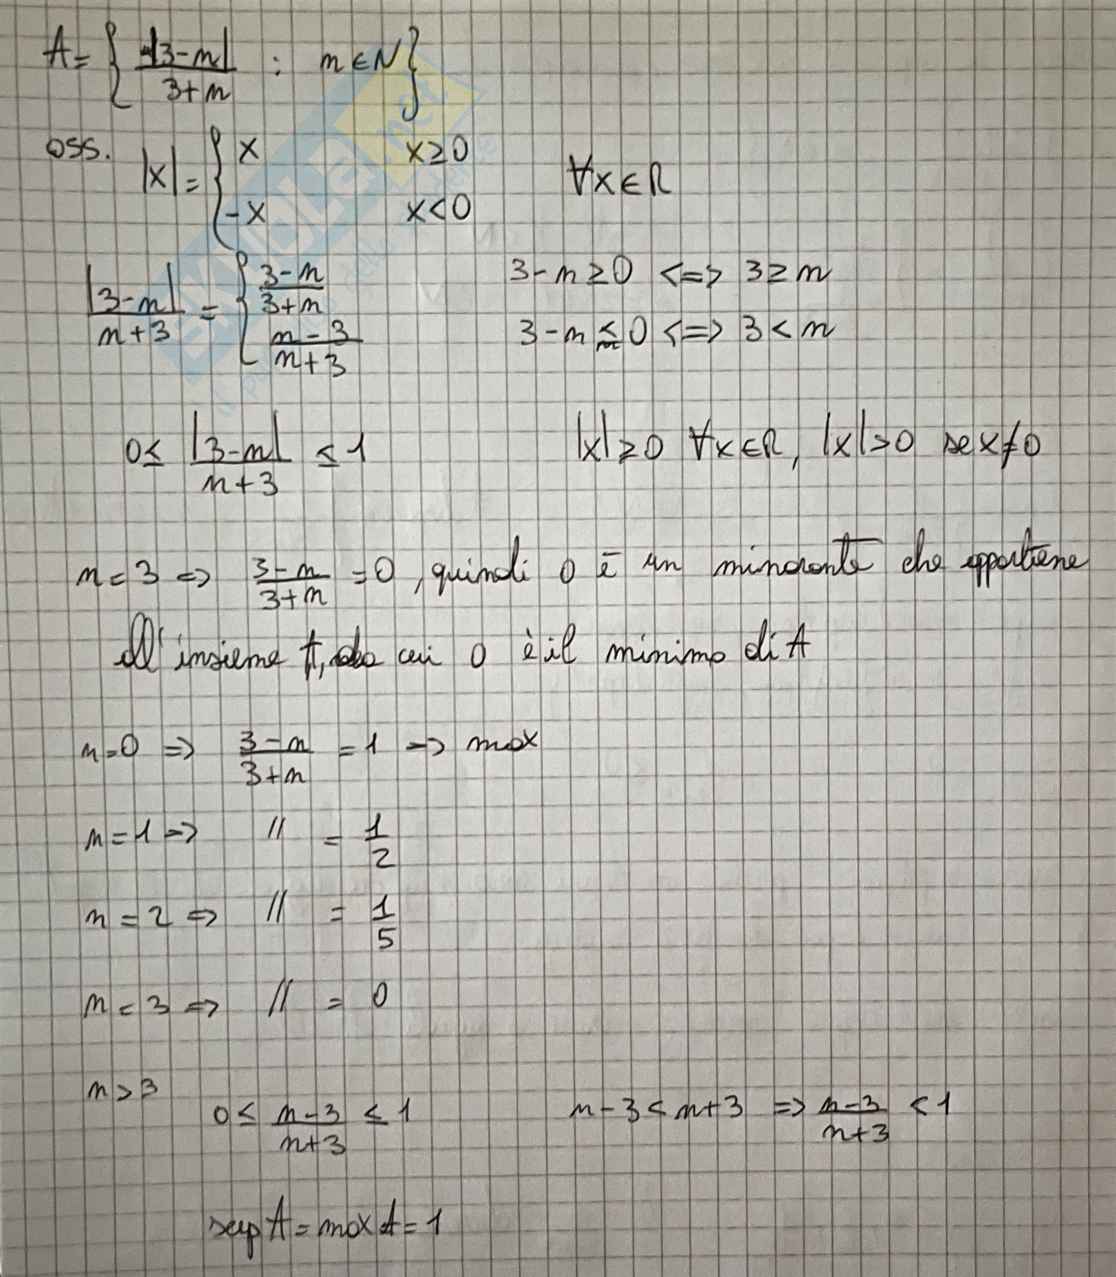 A = { |3-n| / 3+n : n ∈ N }
oss. |x| = { x x≥0 ∀x∈R
-x x<0
|3-n| / n+3 = { 3-n / 3+n 3-n≥0 <=> 3≥n
n-3 / n+3 3-n≤0 <=> 3<n
0≤ |3-n| / n+3 ≤1 |x|≥0 ∀x∈R, |x|>0 se x≠0
n=3 => 3-n / 3+n = 0, quindi 0 è un minorante che appartiene
all'insieme A, da cui 0 è il minimo di A
n=0 => 3-n / 3+n = 1 -> max
n=1 => // = 1/2
n=2 => // = 1/5
n=3 => // = 0
n>3
0≤ n-3 / n+3 ≤1 n-3<n+3 => n-3 / n+3 <1
sup A = max A = 1